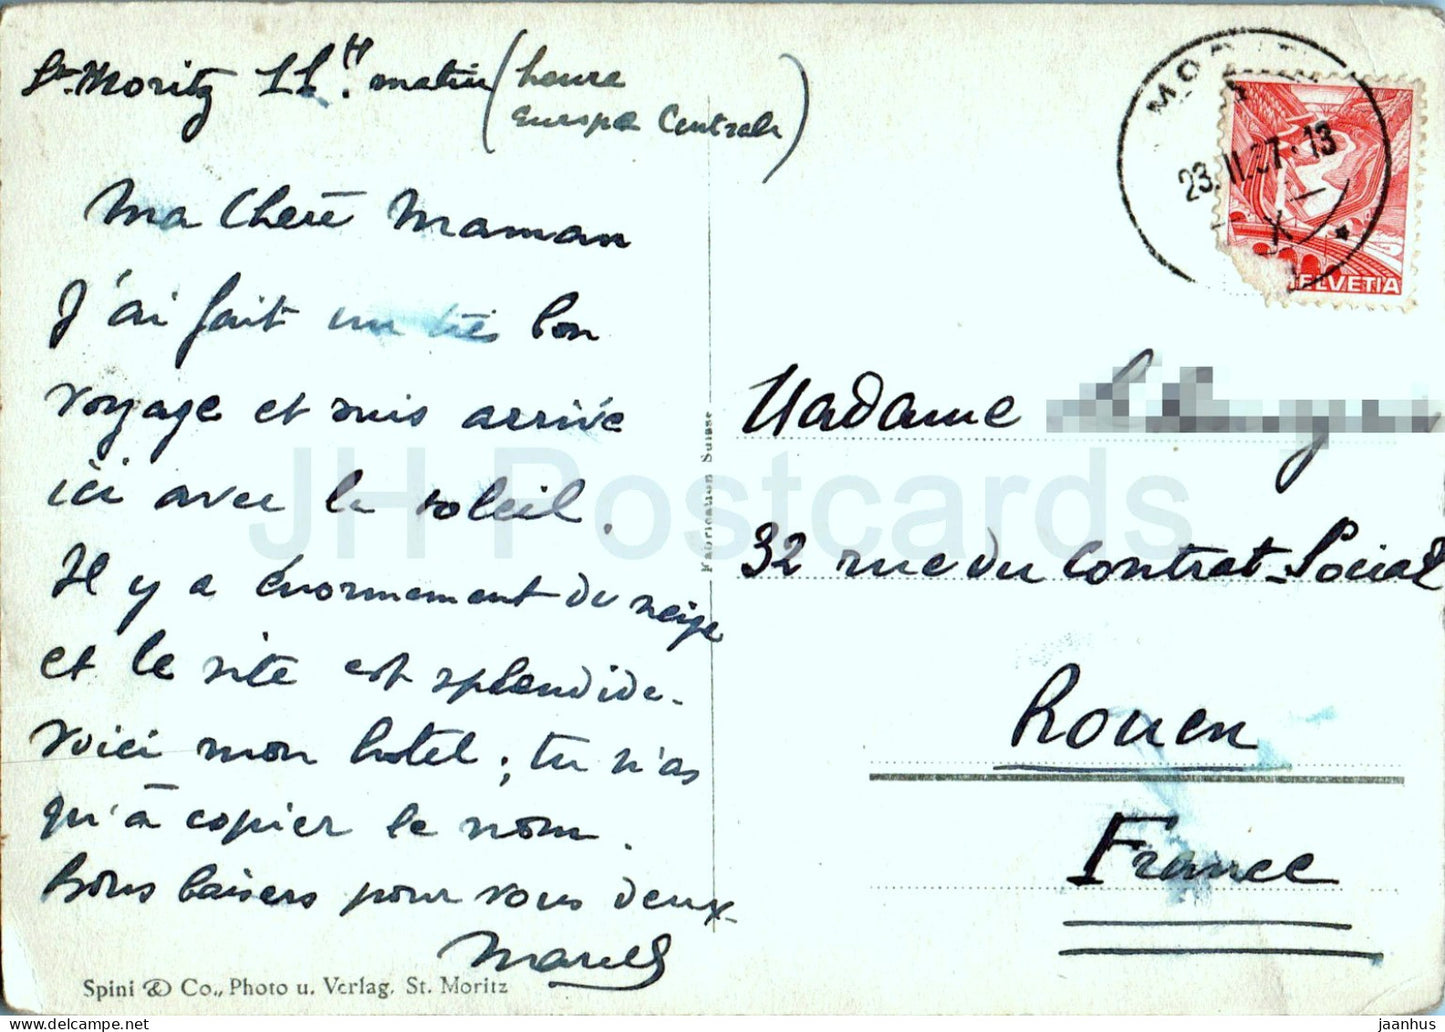 St-Moritz 11H. matin (heure
Europe Centrale)
Ma Chère Maman
J'ai fait un très bon
voyage et suis arrivé
ici avec le soleil.
Il y a énormément de neige
et le site est splendide.
Voici mon hotel ; tu n'as
qu'à copier le nom.
Bons baisers pour vous deux
Marcel
Spini & Co., Photo u. Verlag. St. Moritz
Fabrication Suisse
23.II.37.13
HELVETIA
Madame
32 rue du Contrat-Social
Rouen
France
JH Postcards
delcampe.net
jaanhus